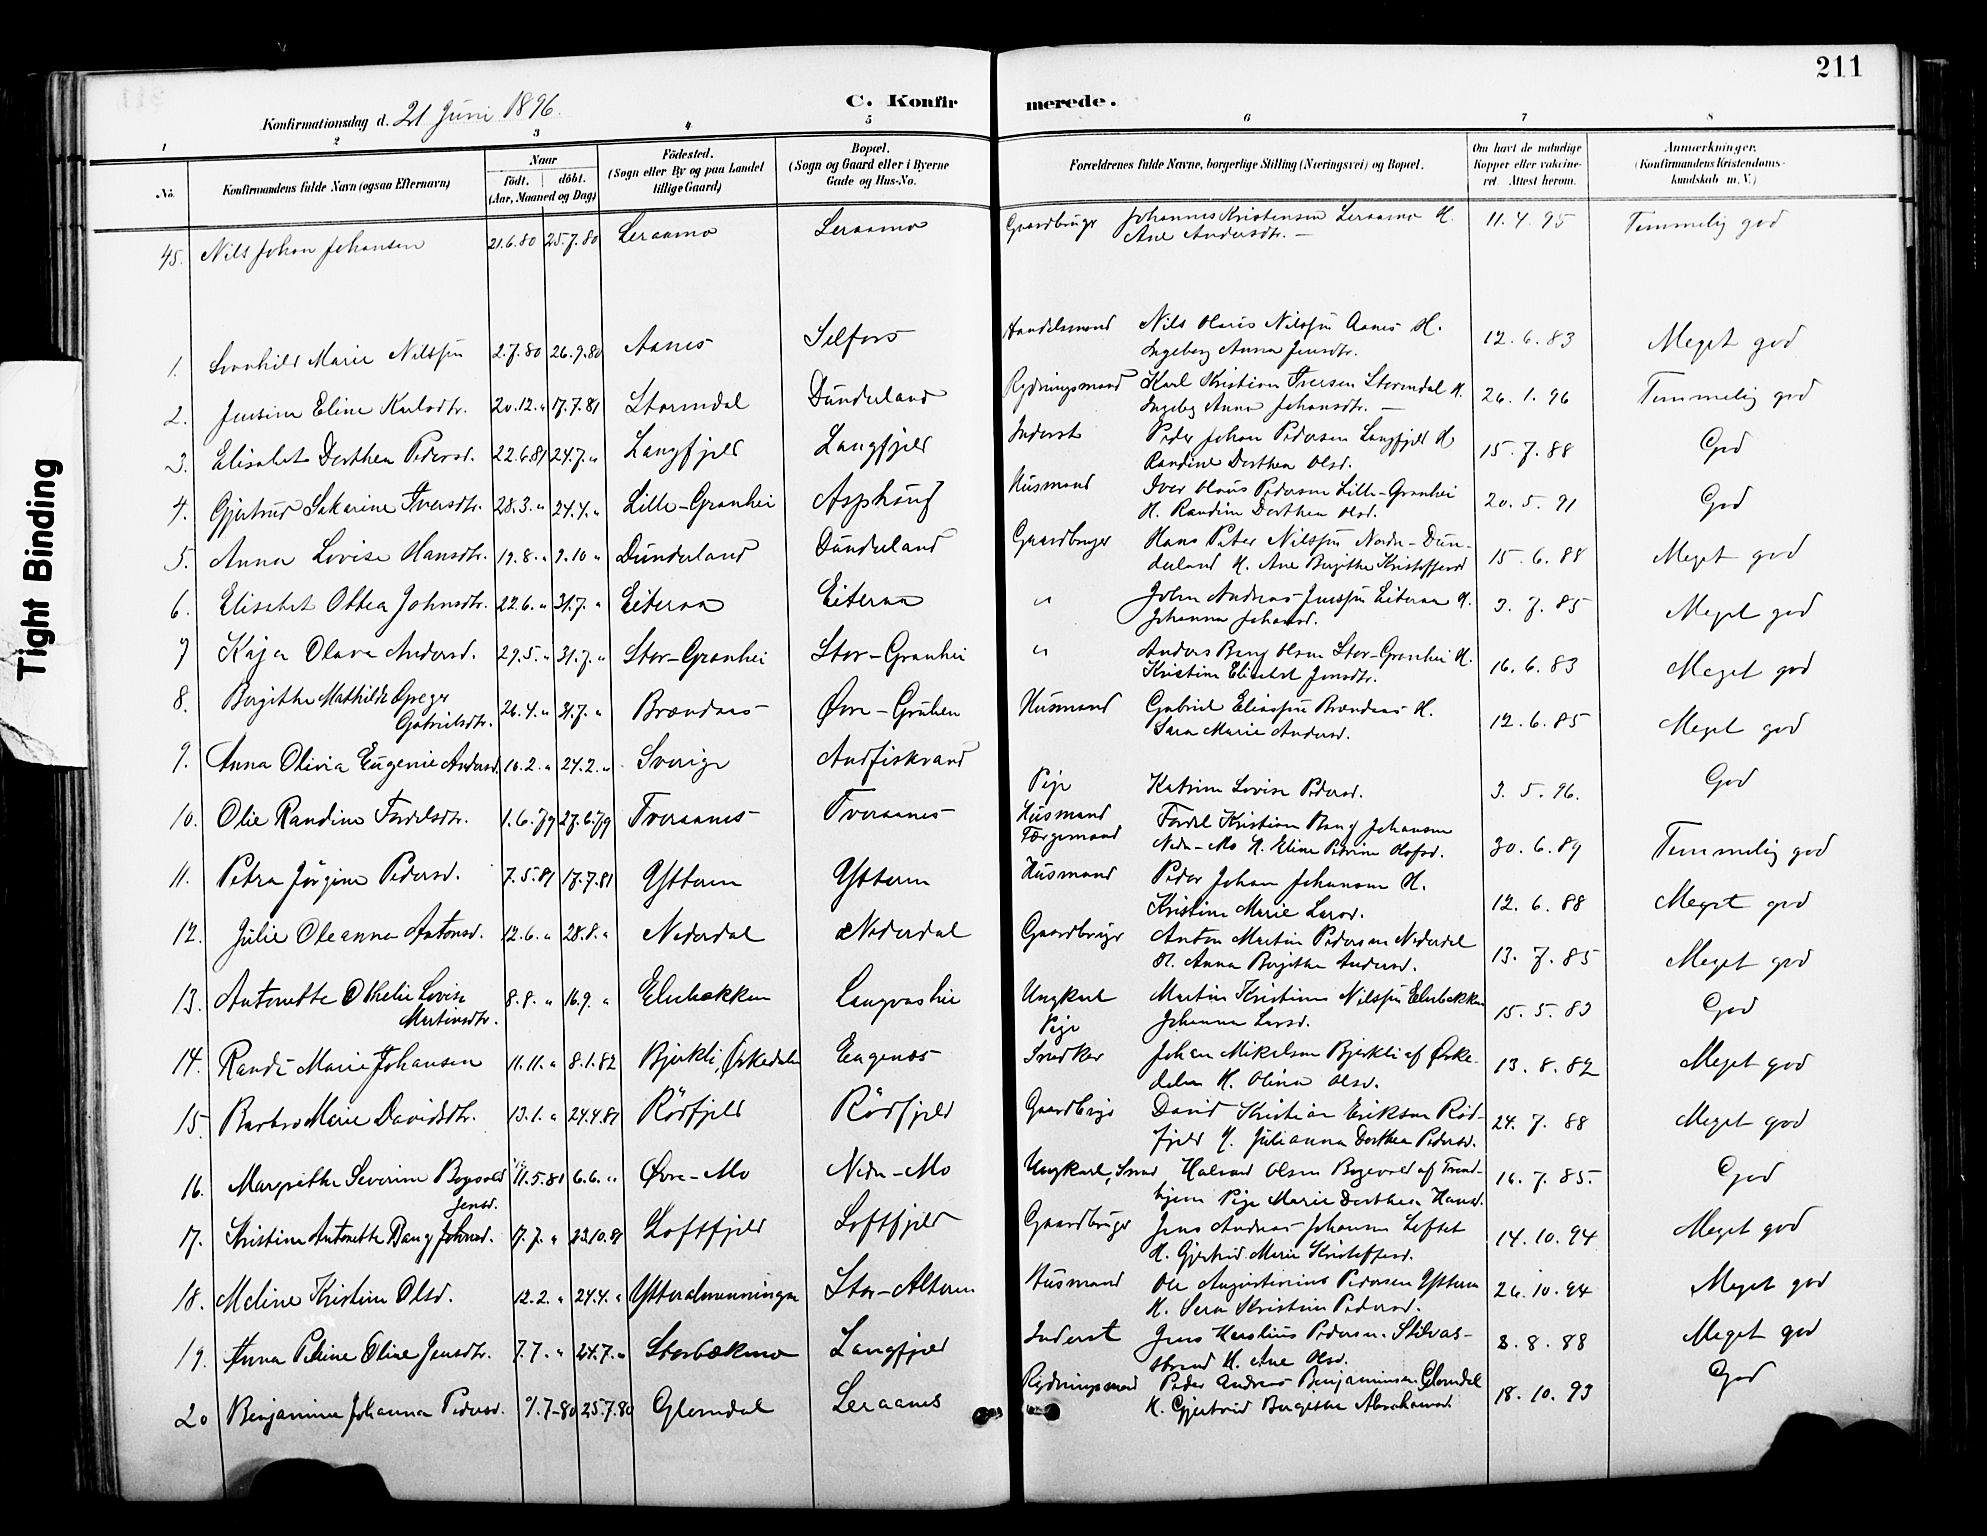 211
Konfirmationsdag d. 21 Juni 1896.
C. Konfirmerede.
1 2 3 4 5 6 7 8
No. Konfirmandens fulde Navn (ogsaa Efternavn) Naar födt. döbt. (Aar, Maaned og Dag) Födested. (Sogn eller By og paa Landet tillige Gaard) Bopæl. (Sogn og Gaard eller i Byerne Gade og Hus-No. Forældrenes fulde Navne, borgerlige Stilling (Næringsvei) og Bopæl. Om havt de naturlige Kopper eller vaccineret. Attest herom. Anmerkninger. (Konfirmandens Kristendomskundskab m. V.)
45. Nils Johan Johansen 21.6.80 25.7.80 Leraamo Leraamo Gaardbruger Johannes Kristensen Leraamo H. 11.4.95 Temmelig god
Ane Andersdtr. —
1. Svanhild Marie Nilssen 2.7.80 26.9.80 Aanes Selfors Handelsmand Nils Olaus Nilssen Aanes H. 12.6.83 Meget god
Ingeborg Anna Jensdtr.
2. Jensine Eline Karlsdtr. 20.12.„ 17.7.81 Stormdal Dunderland Rydningsmand Karl Kristian Iversen Stormdal H. 26.1.96 Temmelig god
Ingebg Anna Johansdtr. —
3. Elisabet Dorthea Pedersd. 22.6.81 24.7.„ Langfjeld Langfjeld Inderst Peder Johan Pedersen Langfjeld H. 15.7.88 God
Randine Dorthea Olsd.
4. Gjertrud Sakarine Iversdtr. 28.3.„ 24.4.„ Lille-Granhei Asphaug Husmand Iver Olaus Pedersen Lille-Granhei 20.5.91 God
H. Randine Dorthea Olsd.
5. Anna Lovise Hansdtr. 19.8.„ 9.10„ Dunderland Dunderland Gaardbruger Hans Peter Nilssen Nordre-Dun- 15.6.88 Meget god
derland H. Ane Birgithe Kristoffersd
6. Elisabet Ottea Johnsdtr. 22.6.„ 31.7.„ Eiteraa Eiteraa „ John Andreas Jenssen Eiteraa H. 3.7.85 Meget god
Johanna Johansd.
7 Kaja Olava Andersd. 29.5.„ 31.7.„ Stor-Granhei Stor-Granhei „ Anders Bang Olsen Stor-Granhei H. 16.6.83 Meget god
Kristine Elisabet Jensdtr.
8. Bergithe Mathilde Greger Gabrielsdtr. 26.4.„ 31.7.„ Brændaas Øvre-Gruben Husmand Gabriel Eliassen Brændaas H. 12.6.85 Meget god
Sara Marie Andersd.
9. Anna Olivia Eugenie Andersd. 16.2.„ 24.2.„ Sverige Andfiskvand Pige Katrine Lovise Pedersd. 3.5.96. God
10. Olie Randine Fordelsdtr. 1.6.79 27.6.79 Tveraanes Tveraanes Husmand Færgemand Fordel Kristian Bang Johansen 30.6.89 Temmelig god
Nedre-Mo H. Eline Petrine Olofsd.
11. Petra Jørgine Pedersd. 7.5.81 17.7.81 Ytteren Ytteren Husmand Peder Johan Johansen H. 12.6.88 Meget god
Kristine Marie Larsd.
12. Julie Oleanna Antonsd. 12.6.„ 28.8.„ Nederdal Nederdal Gaardbruger Anton Martin Pedersen Nederdal 13.7.85 Meget god
H. Anna Bergithe Andersd.
13. Antonette Othelie Lovise Martinsdtr. 8.8.„ 16.9.„ Elvebakken Langvashei Ungkarl Martin Kristian Nilssen Elvebakken 15.5.83 God
Pige Johanna Larsd.
14. Randi Marie Johansen 11.11.„ 8.1.82 Bjerkli, Ørkedalen Engenæs Snedker Johan Mikalsen Bjerkli af Ørke- 13.8.82 Meget god
dalen H. Olina Olsd.
15. Barbro Marie Davidsdtr. 13.1.„ 24.4.81 Rödfjeld Rödfjeld Gaardbrugr David Kristian Eriksen Röd- 24.7.88 Meget god
fjeld H. Julianna Dorthea Pedersd.
16. Margrethe Severine Bogevold Jensd. 11.5.81 6.6.„ Øvre-Mo Nedre-Mo Ungkarl, Smed Halvard Olsen Bogevold af Trond- 16.7.85. God
hjem Pige Marie Dorthea Hansd.
17. Kristine Antonette Bang Johnsd. 17.7.„ 23.10.81 Loftfjeld Loftfjeld Gaardbruger Jens Andreas Johansen Loftet 14.10.94 Meget god
H. Gjertrud Marie Kristoffersd.
18. Meline Kristine Olsd. 12.2.„ 24.4.„ Ytteralmenningen Stor-Alteren Husmand Ole Augustinius Pedersen Ytteren 26.10.94 Meget god
H. Sara Kristine Pedersd.
19. Anna Petrine Oline Jensdtr. 7.7.„ 24.7.„ Storbækmo Langfjeld Inderst Jens Karolius Pedersen Stilvas- 3.8.88 Meget god
strand H. Ane Olsd.
20 Benjamine Johanna Pedersd. 9/7-80 25.7.80 Glomdal Leraanes Rydningsmand Peder Andreas Benjaminsen Glomdal 18.10.93 God
H. Gjertrud Bergithe Abrahamsd.
Tight Binding